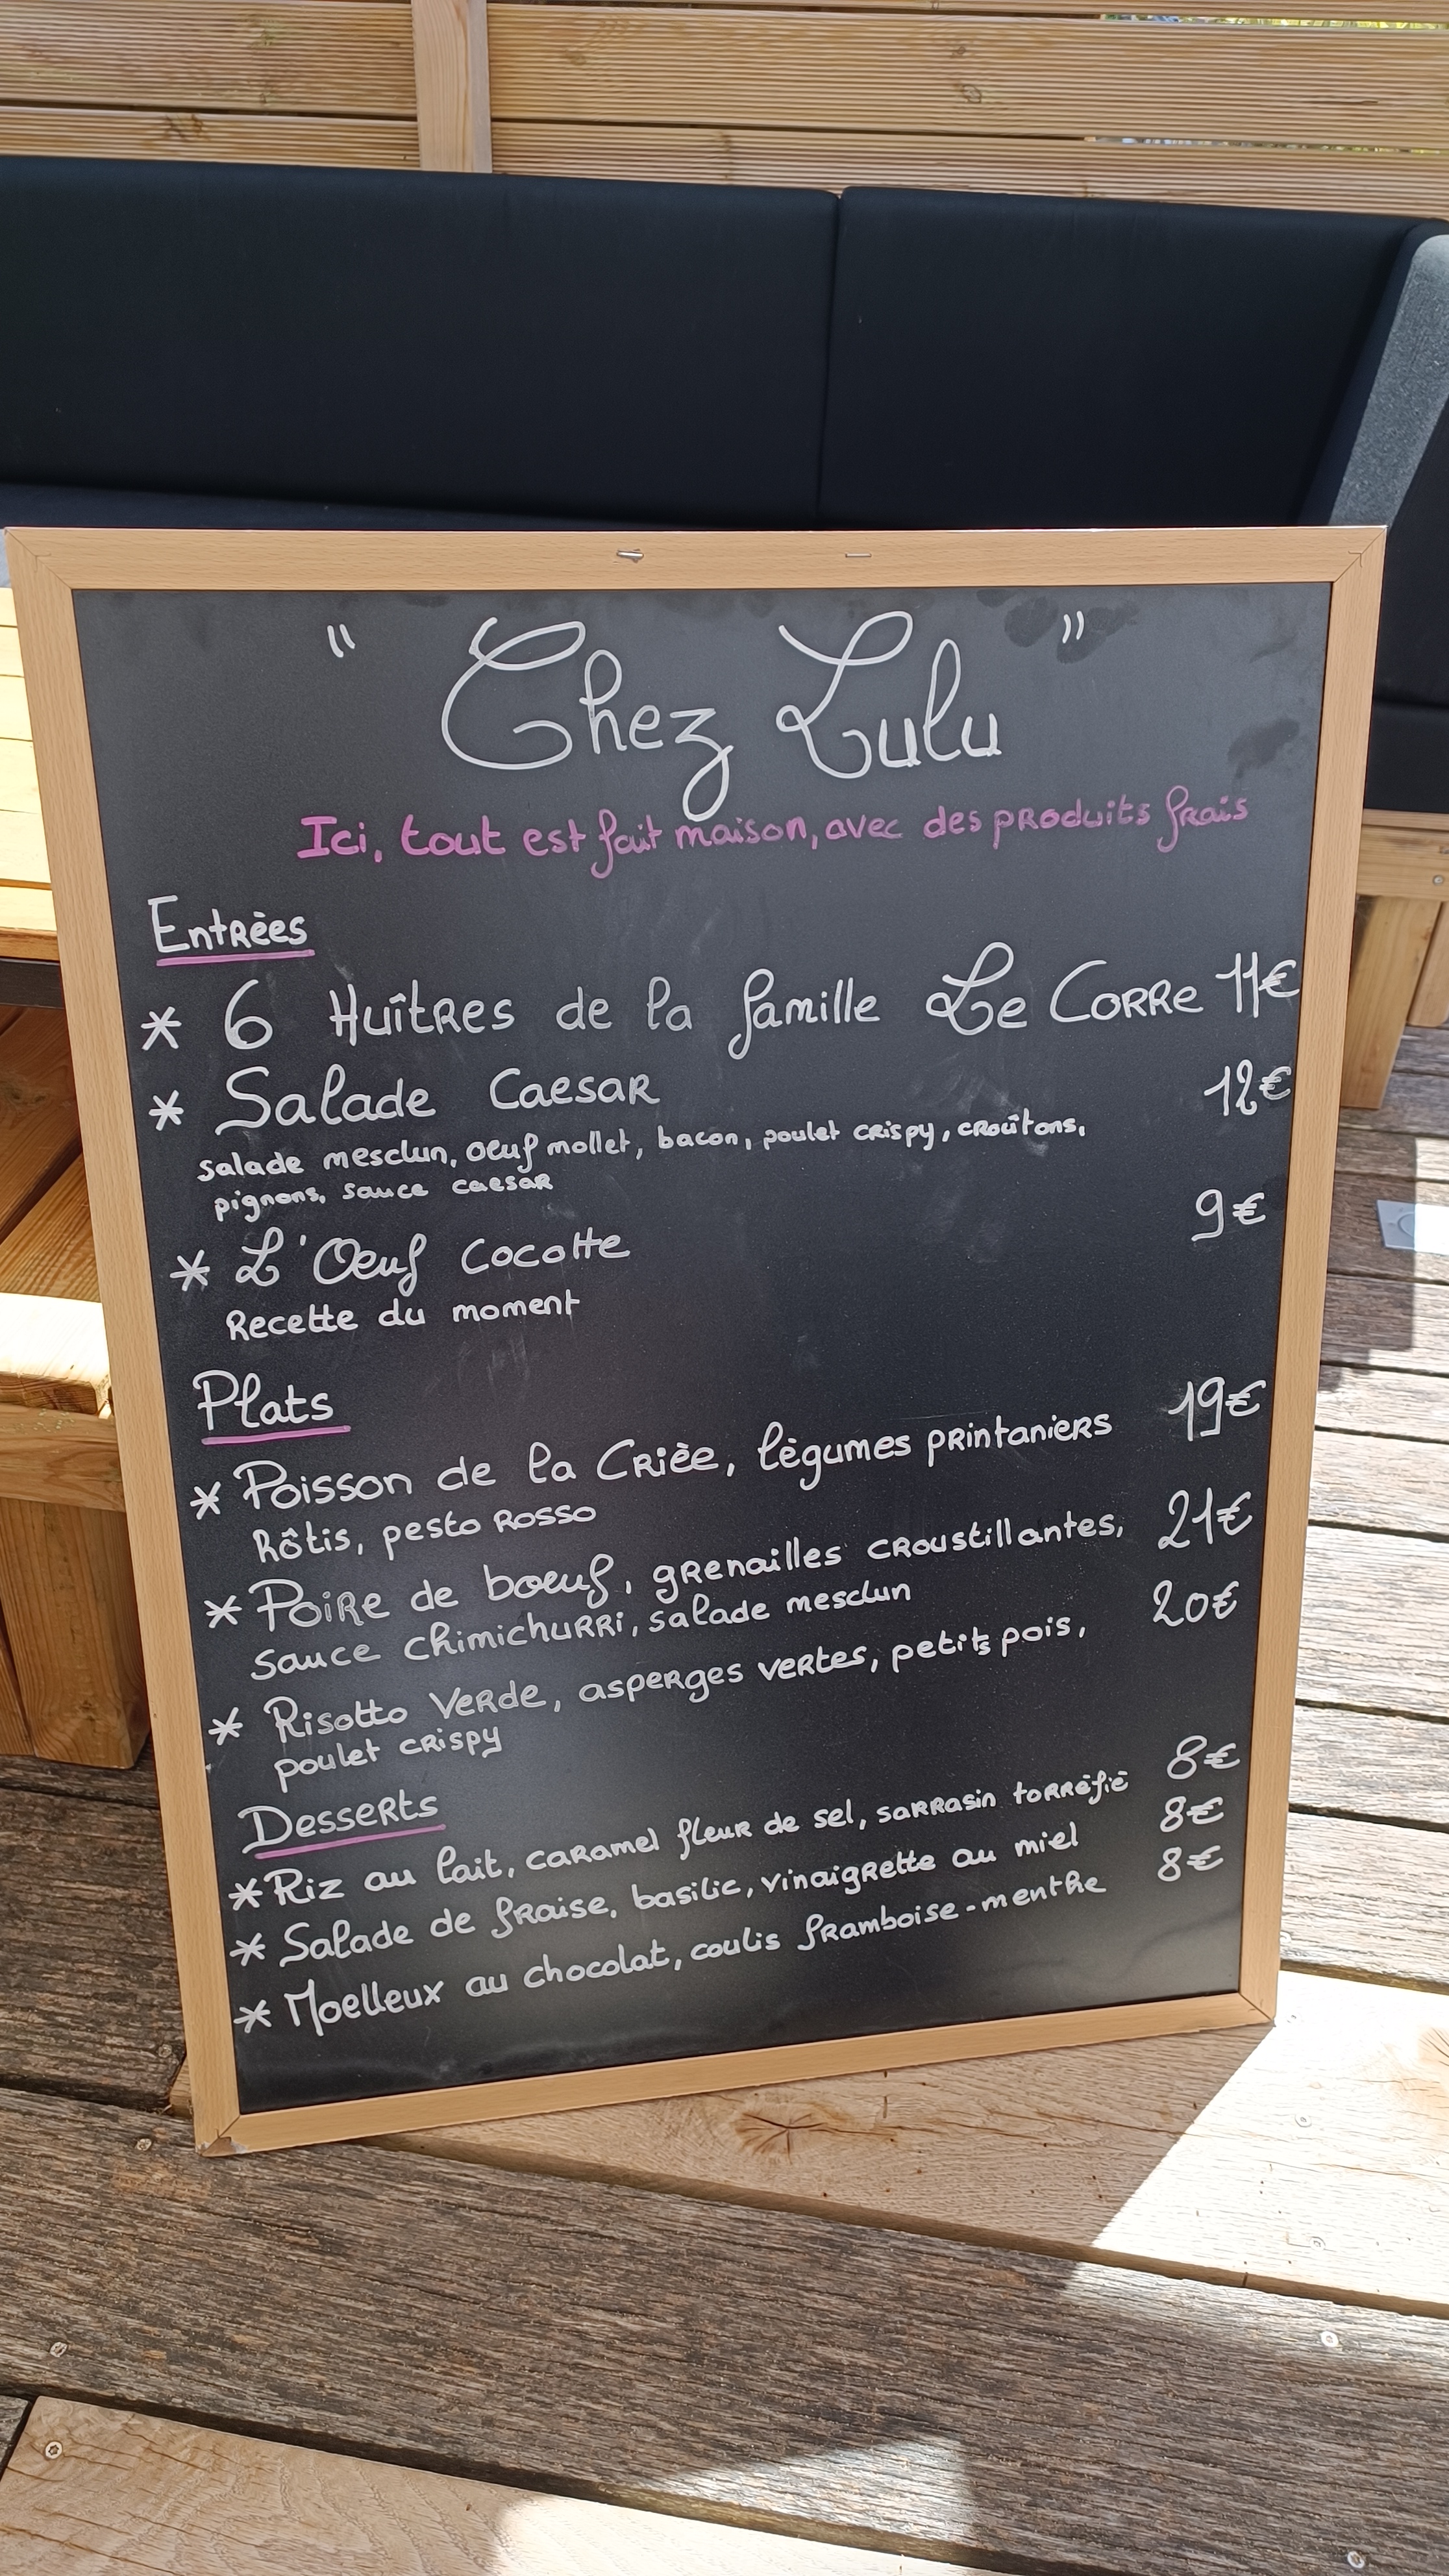 " Chez Lulu "
Ici, tout est fait maison, avec des produits frais
Entrées
* 6 Huîtres de la famille Le Corre 11€
* Salade Caesar 12€
salade mesclun, oeuf mollet, bacon, poulet crispy, croûtons,
pignons, sauce caesar
* L'Oeuf Cocotte 9€
Recette du moment
Plats
* Poisson de la Criée, légumes printaniers 19€
rôtis, pesto rosso
* Poire de boeuf, grenailles croustillantes, 21€
sauce chimichurri, salade mesclun
* Risotto Verde, asperges vertes, petits pois, 20€
poulet crispy
Desserts
* Riz au lait, caramel fleur de sel, sarrasin torréfié 8€
* Salade de fraise, basilic, vinaigrette au miel 8€
* Moelleux au chocolat, coulis framboise-menthe 8€